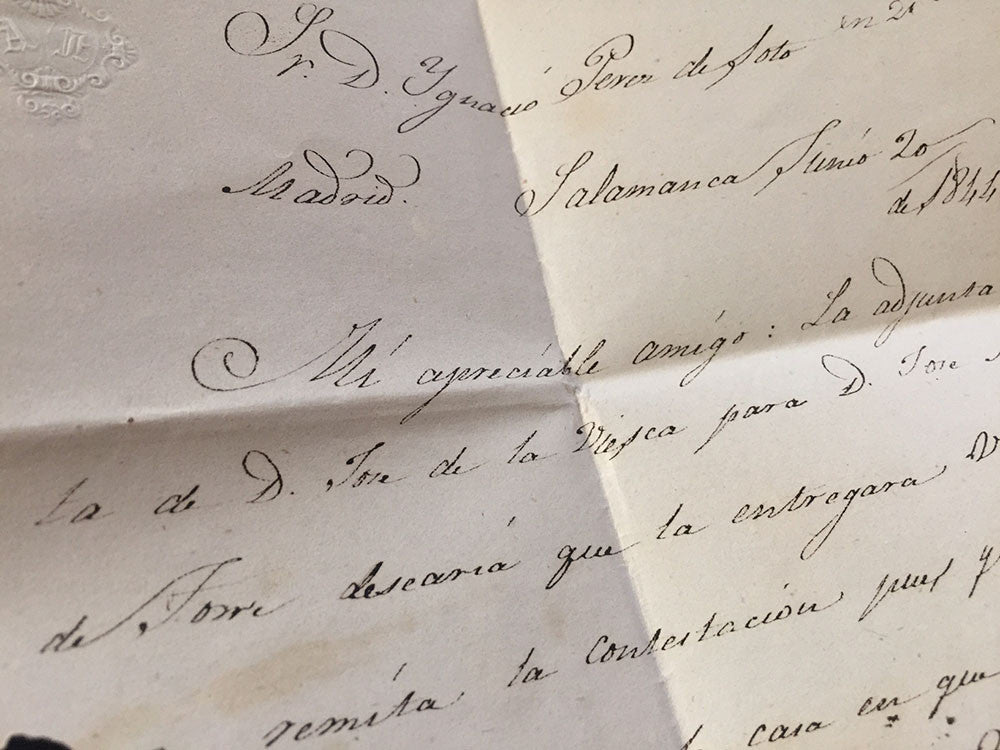 Sr. D. Ygnacio Perez de Soto en 21
Madrid. Salamanca Junio 20
de 1844
Mi apreciable amigo: La adjunta
ta de D. Jose de la Viesca para D. Jose
de Torre desearia que la entregara V
remita la contestacion pues
casa en que